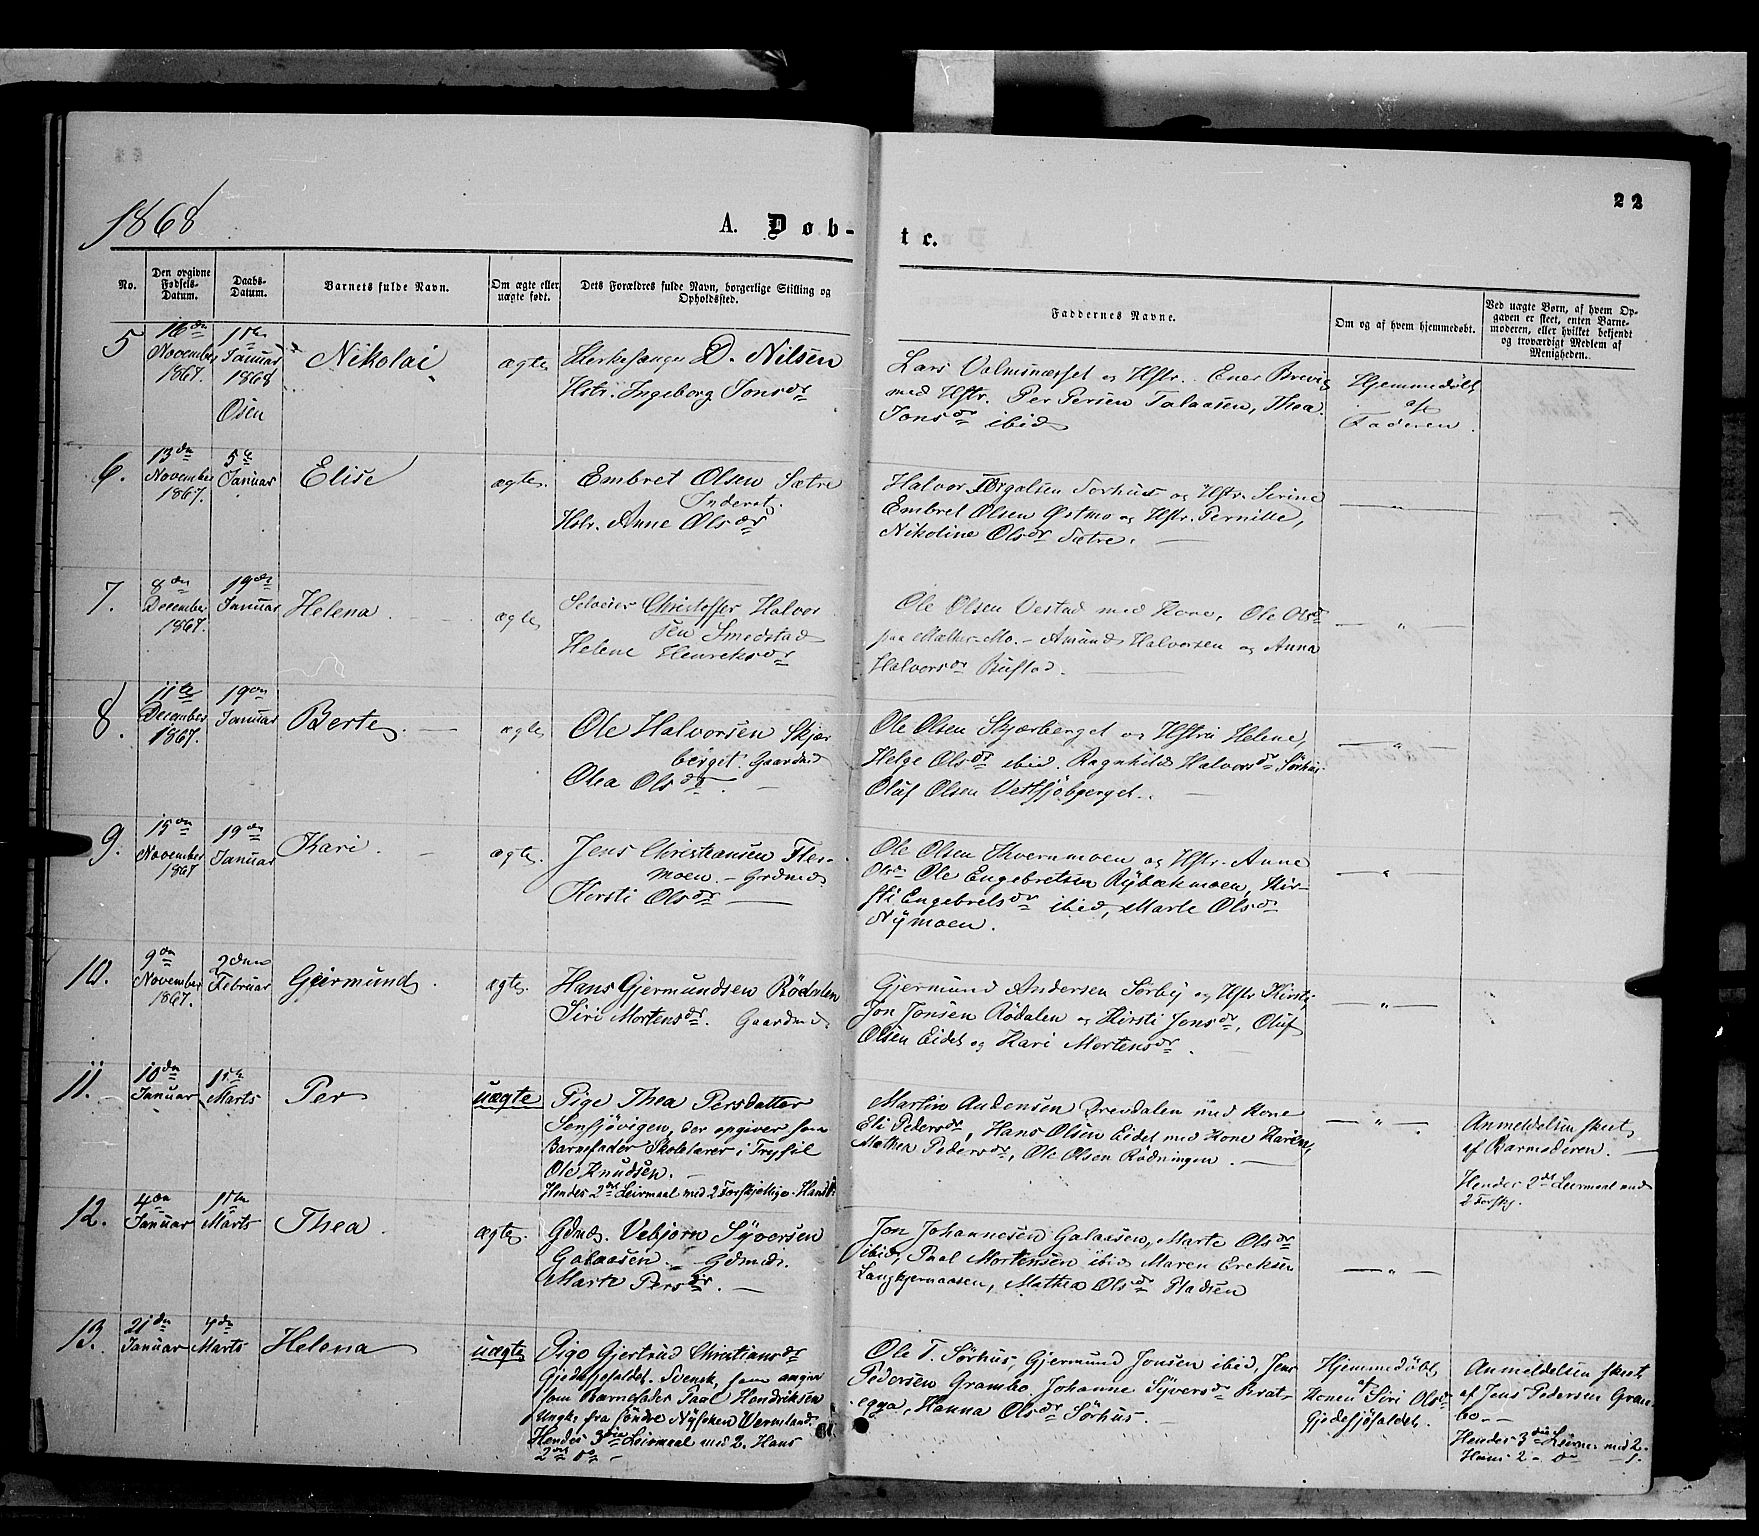 22
1868
A. Døb-
te.
No.
Den opgivne Fødsels-Datum.
Daabs-Datum.
Barnets fulde Navn.
Om ægte eller uægte født.
Dets Forældres fulde Navn, borgerlige Stilling og Opholdssted.
Faddernes Navne.
Om og af hvem hjemmedøbt.
Ved uægte Børn, af hvem Opgaven er skeet, enten Barnemoderen, eller hvilket bekjendt og troværdigt Medlem af Menigheden.
5
16de November 1867.
1ste Januar 1868 Osen
Nikolai
ægte
Kirkesanger D. Nilsen
Hstr. Ingeborg Jonsdr
Lars Valmsnæsset og Hstr. Ener Brevig
med Hstr. Per Persen Talaasen, Thea
Jonsdr ibid
Hjemmedøbt
af
Faderen.
6.
13de November 1867.
5te Januar
Elise
ægte.
Embret Olsen Sætre
Inderst.
Hstr. Anne Olsdr
Halvor Torgalsen Sorhus og Hstr. Serine
Embret Olsen Østmo og Hstr. Pernille,
Nikoline Olsdr Sætre.
— " —
7.
8de December 1867.
19de Januar
Helena
ægte
Selveier Christoffer Halvor
sen Smedstad
Helene Henriksdr
Ole Olsen Vestad med Kone, Ole Olsn
paa Mælker-Mo. - Amund Halvorsen og Anna
Halvorsdr Bustad.
— " —
8.
11te December 1867.
19de Januar
Berte
ægte
Ole Halvorsen Skjær
berget. Gaardmd
Olea Olsdr.
Ole Olsen Skjærberget og Hstru Helene,
Helge Olsdr ibid. Ragnhild Halvorsdr Sørhus
Oluf Olsen Vestsjöbperget.
— " —
9.
15de November 1867
19de Januar
Kari.
ægte.
Jens Christiansen Fler-
moen. - Grdmd
Kersti Olsdr
Ole Olsen Kvernmoen og Hstr. Anne
Olsdr Ole Engebretsen Rybækmoen, Kir-
sti Engebretsdr ibid, Marte Olsdr
Nymoen.
— " —
10.
9de November 1867.
2den Februar
Gjermund.
ægte.
Hans Gjermundsen Rödalen
Siri Mortensdr. Gaardmd
Gjermund Andersen Sørby og Hstr Kirsti,
Jon Jonsen Rødalen og Kirsti Jonsdr, Oluf
Olsen Eidet og Kari Mortensdr.
— " —
11.
10de Januar
1ste Marts
Per
uægte
Pige Thea Persdatter
Sensjövigen, der opgiver som
Barnefader Skolelærer i Trysil
Ole Knudsen.
Hendes 2det Leiermaal med 2 Forskjellige.
Martin Andersen Brendalen med Kone
Eli Pedersdr, Hans Olsen Eidet med Kone Karen,
Mathea Pedersdr, Ole Olsen Rödningen.
— " —
Anmeldelsen skeet
af Barmoderen.
Hendes 2det Leirmaal med
2 Forskj.
12.
4de Januar
1ste Marts
Thea.
ægte.
Gdmd. Vebjørn Syversen
Galaasen - Gdmd.
Marte Persdr.
Jon Johannesen Galaasen, Marte Olsdr
ibid, Paal Mortensen ibid Maren Ereksen
Langtjernaasen, Mathea Olsdr Pladsen
— " —
13.
21de Januar
4de Marts
Helena
uægte
Pige Gjertrud Christiansdr
Gjedesjøfaldet. Svensk, som angiver
som Barnefader Paal Hendriksen
Ungk. fra söndre Nyskoen Wermland.
Hendes 3die Leirmaal med 2. Hans
2det do
Ole T. Sørhus, Gjermund Jonsen ibid, Jens
Pedersen Grambo, Johanne Syversdr Brat-
egga, Hanna Olsdr Sørhus.
Hjemmedøbt
af
Konen Siri Olsdr.
Gjedesjöfaldet.
Anmeldelsen skeet
af Jens Pedersen Gram-
bo.
Hendes 3die Leirm. med 2.
Hans 2. do